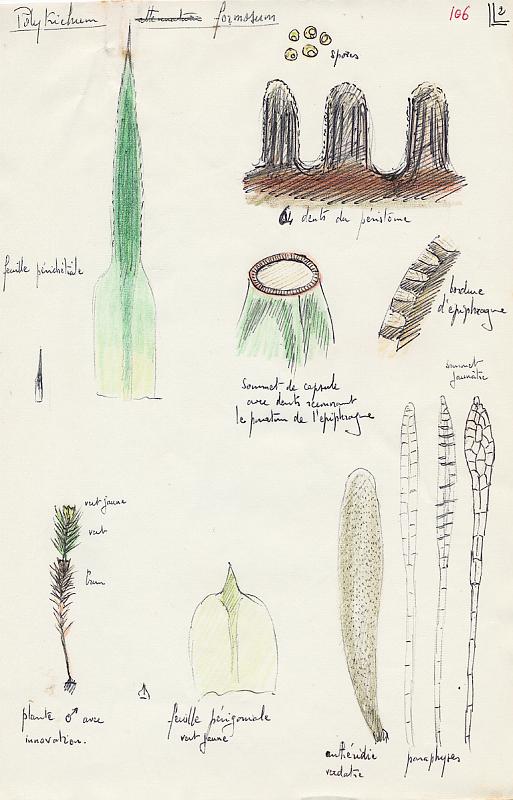 Polytrichum attenuatum formosum
106
2
spores
64 dents du péristome
feuille périchétiale
bordure
d'épiphragme
sommet de capsule
avec dents recouvrant
le pourtour de l'épiphragme
sommet
jaunâtre
vert jaune
vert
brun
plante ♂ avec
innovation.
feuille périgoniale
vert jaune
anthéridie
verdâtre
paraphyses